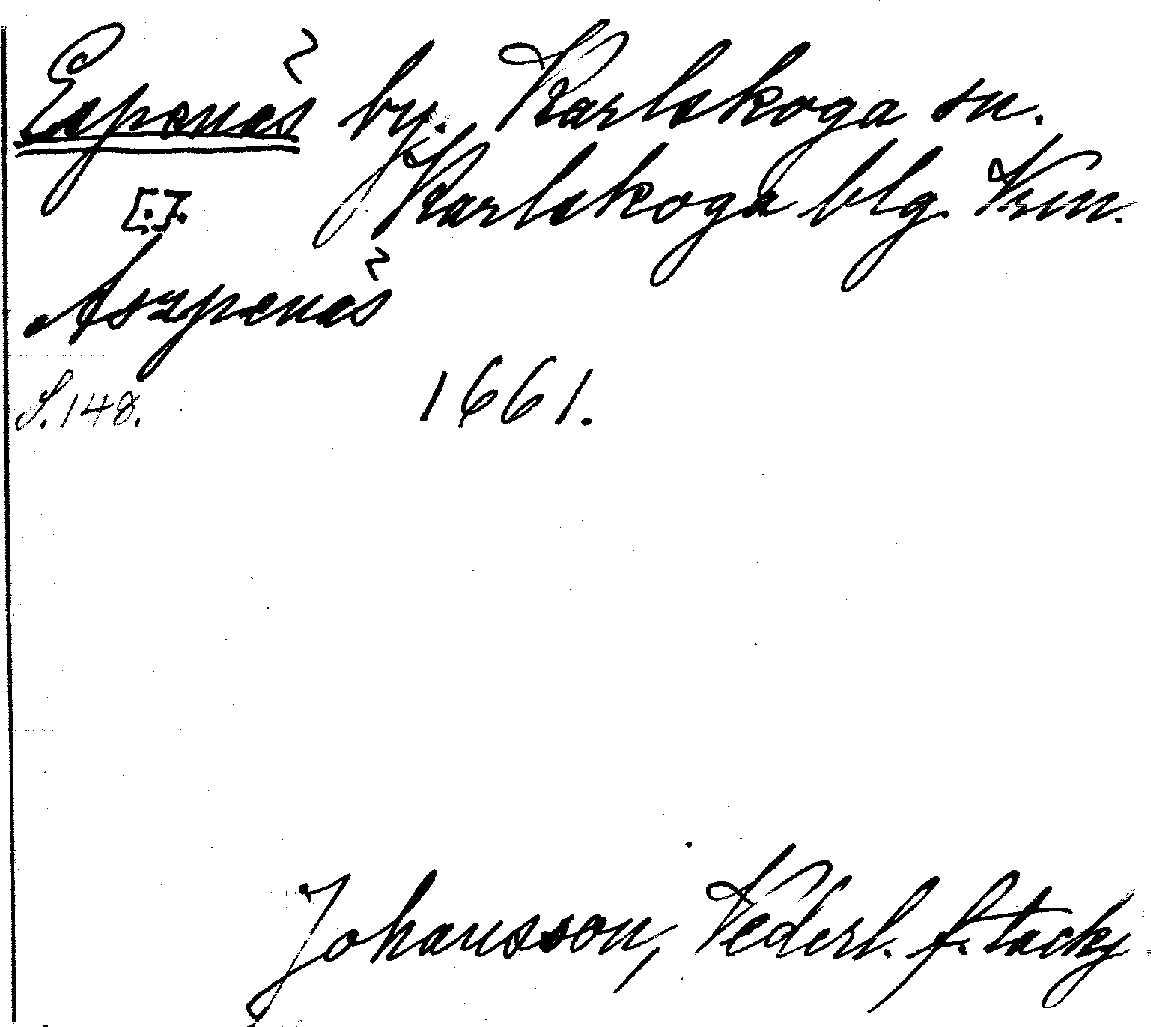 Espenäs by. Karlskoga sn.
[:]. Karlskoga blg. Vrm.
Aszpenäs
S. 148. 1661.
Johansson, Vederl. f. tackj